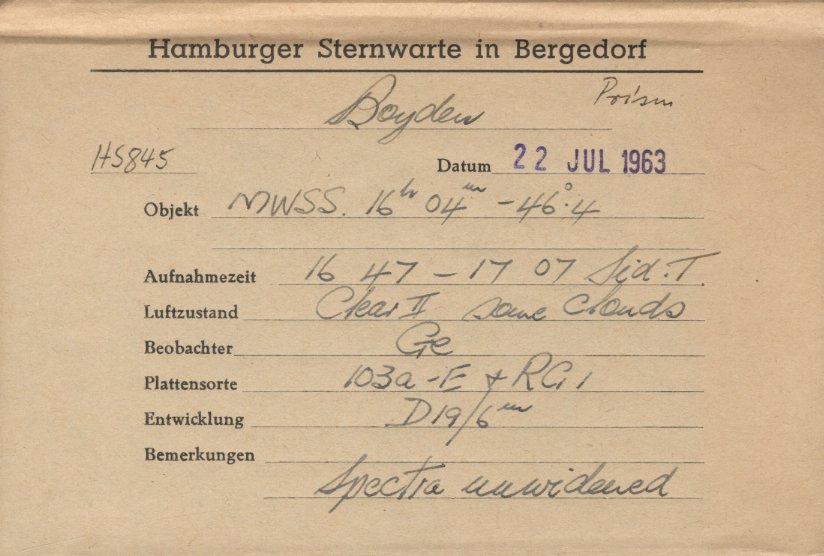 Hamburger Sternwarte in Bergedorf
Boyden Prism
HS845 Datum 22 JUL 1963
Objekt MWSS. 16h 04m -46°.4
Aufnahmezeit 16 47 - 17 07 Sid. T.
Luftzustand Clear II some clouds
Beobachter Ge
Plattensorte 103a-E + RG1
Entwicklung D19/6m
Bemerkungen
Spectra unwidened